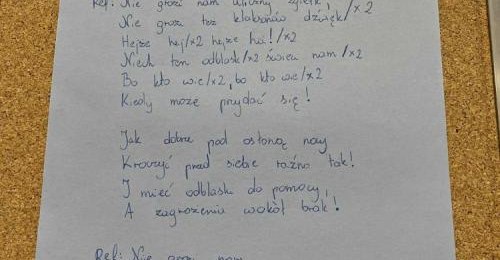 Ref: Nie grozi nam uliczny zgiełk,
Nie grozi też klaksonów dźwięk, /x2
Hejże hej /x2 hejże ha! /x2
Niech ten odblask /x2 świeci nam /x2
Bo kto wie /x2, bo kto wie /x2
Kiedy może przydać się!
Jak dobrze pod osłoną nocy
Kroczyć przed siebie raźno tak!
I mieć odblaski do pomocy,
A zagrożenia wokół brak!
Ref: Nie grozi nam